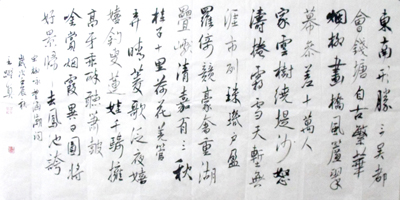 東南形勝三吴都
會錢塘自古繁華
烟柳畫橋風簾翠
幕參差十萬人
家雲樹繞堤沙怒
濤捲霜雪天塹無
涯市列珠璣戶盈
羅綺競豪奢重湖
疊巘清嘉有三秋
桂子十里荷花羌管
弄晴菱歌泛夜嬉
嬉釣叟蓮娃千騎擁
高牙乘醉聽簫鼓
吟賞烟霞異日圖將
好景歸去鳳池誇
宋柳永望海潮詞